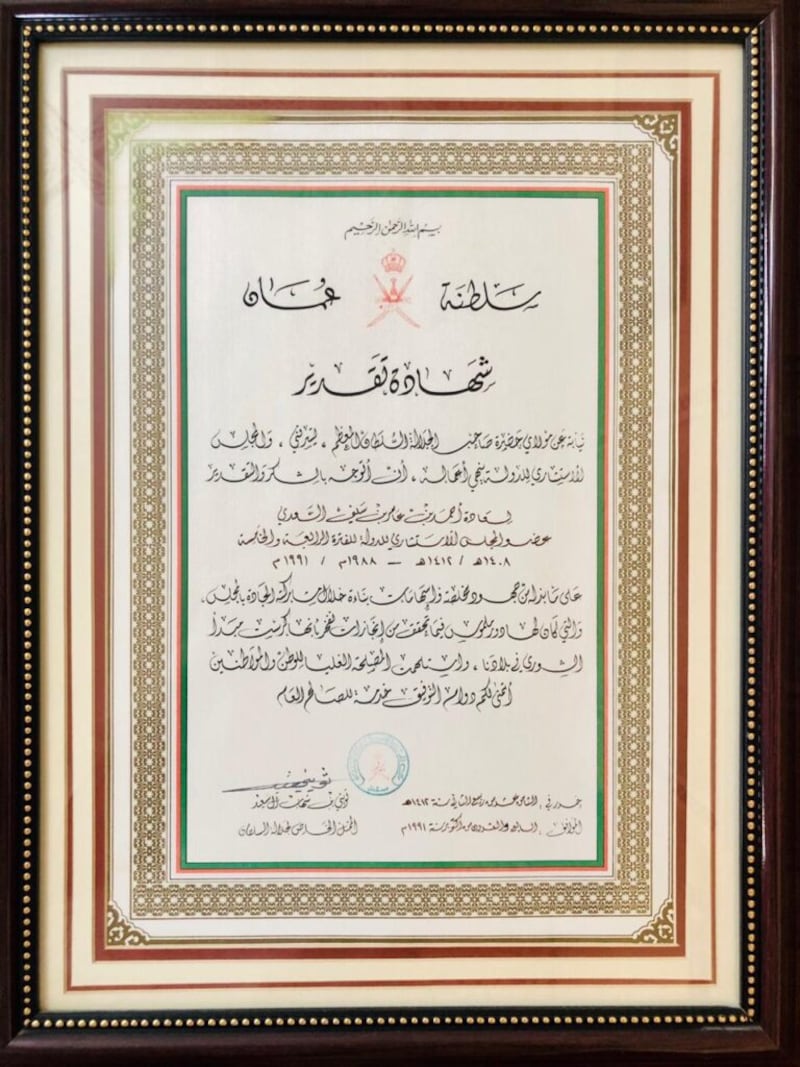 بسم الله الرحمن الرحيم
سلطنة عُمان
شهادة تقدير
نيابة عن مولاي حضرة صاحب الجلالة السلطان المعظم ، يسرني ، والمجلس
الاستشاري للدولة ينهي أعماله ، أن أتوجه بالشكر والتقدير
لسعادة أحمد بن عامر بن سيف السعدي
عضو المجلس الاستشاري للدولة للفترة الرابعة والخامسة
١٤٠٨هـ / ١٤١٢هـ – ١٩٨٨م / ١٩٩١م
على ما بذله من جهود مخلصة وإسهامات بناءة خلال مشاركته الجادة بالمجلس ،
والتي كان لها دور ملموس فيما تحقق من إنجازات نفخر بأنها كرست مبدأ
الشورى في بلادنا ، واستلهمت المصلحة العليا للوطن والمواطنين
أتمنى لكم دوام التوفيق خدمة للصالح العام
حرر في : الثامن عشر من ربيع الثاني سنة ١٤١٢هـ
الموافق : السابع والعشرون من أكتوبر سنة ١٩٩١م
ثويني بن شهاب آل سعيد
الممثل الخاص لجلالة السلطان